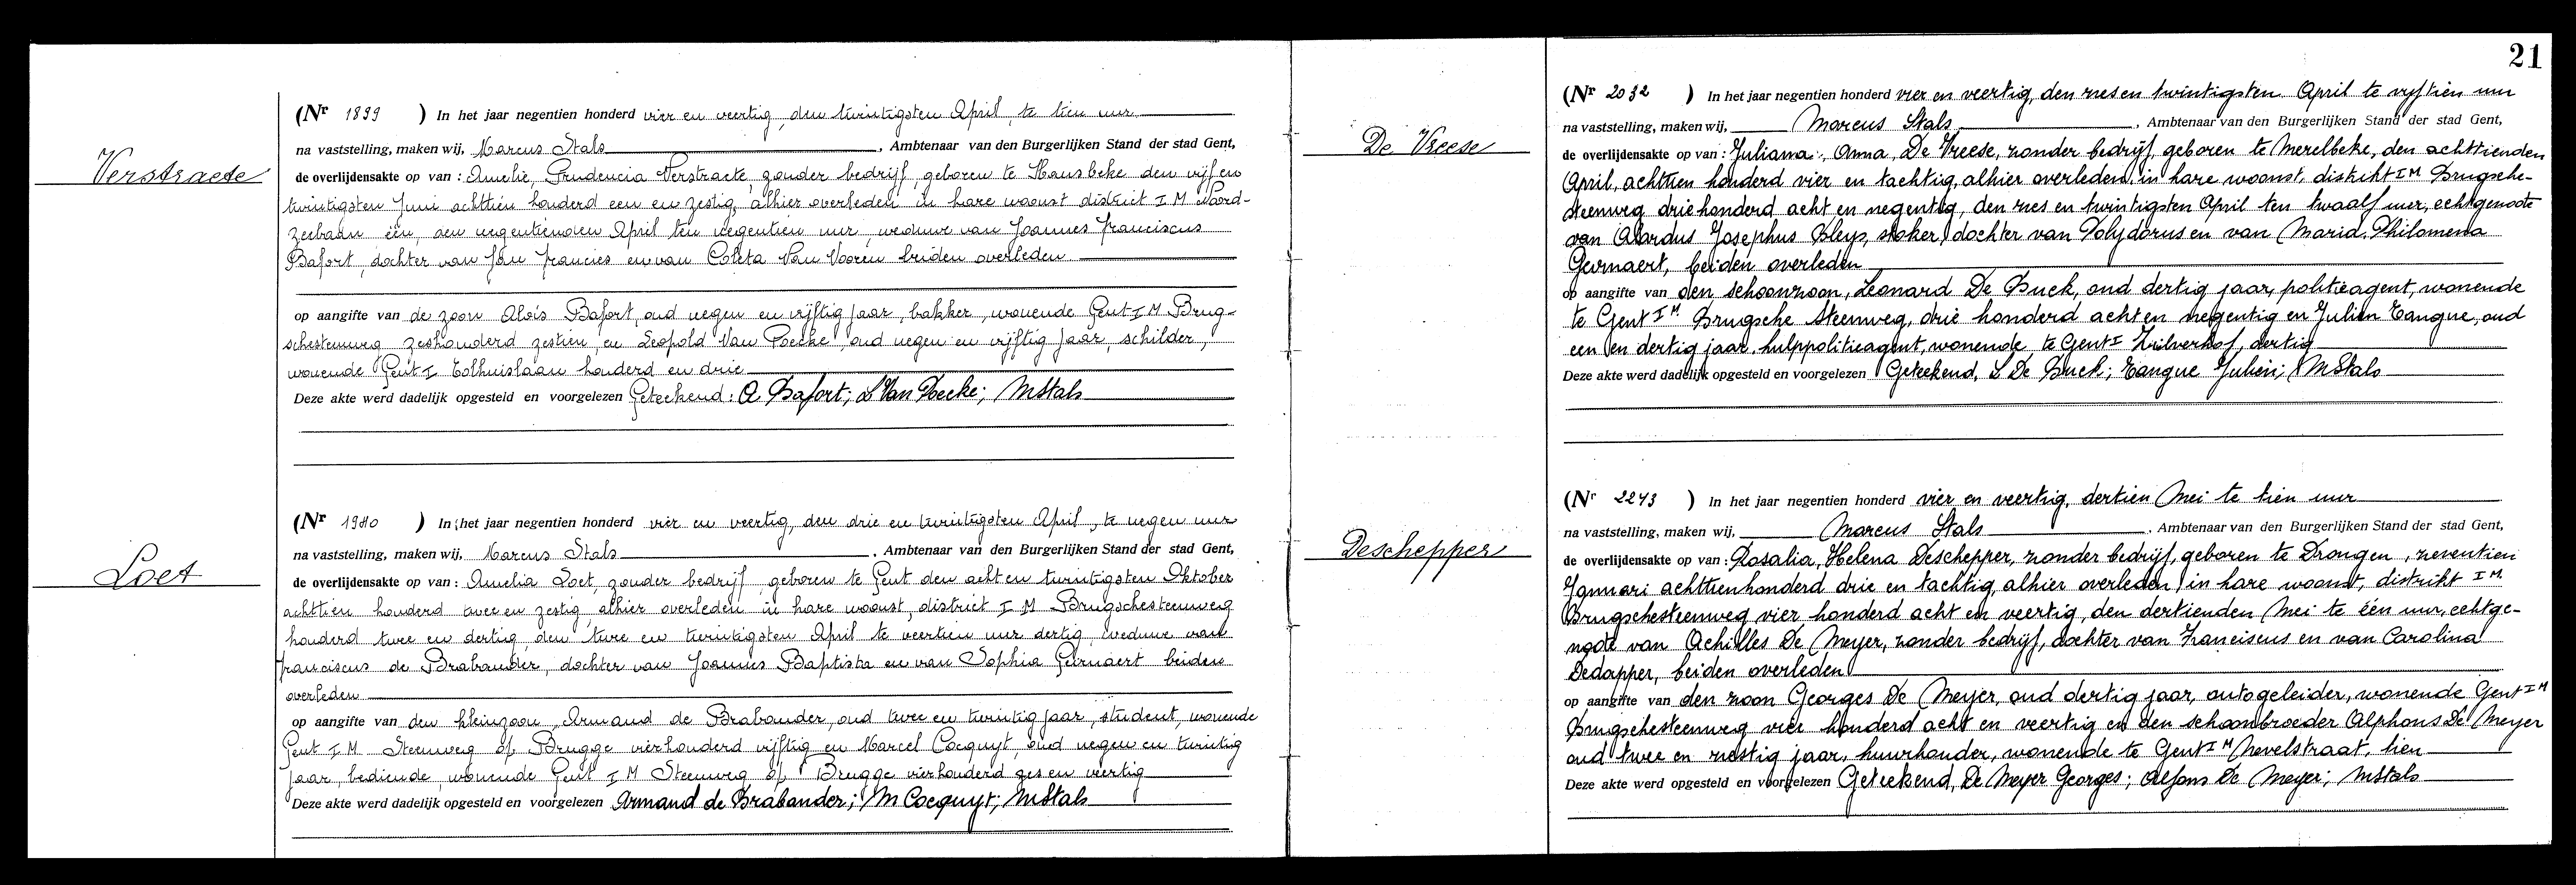 Verstraete
(Nr 1899 ) In het jaar negentien honderd vier en veertig, den twintigsten April, te tien uur
na vaststelling, maken wij, Marcus Stals, Ambtenaar van den Burgerlijken Stand der stad Gent,
de overlijdensakte op van : Amelie, Prudencia Verstraete, zonder bedrijf, geboren te Hansbeke den vijf en
twintigsten Juni achttien honderd een en zestig, alhier overleden in hare woonst district I M Noord-
zeebaan één, den negentienden April ten negentien uur, weduwe van Joannes Franciscus
Bafort, dochter van Jan Francies en van Coleta Van Vooren beiden overleden
op aangifte van de zoon Aloïs Bafort, oud negen en vijftig jaar, bakker, wonende Gent I M Brug-
schesteenweg zeshonderd zestien, en Leopold Van Poecke, oud negen en vijftig jaar, schilder,
wonende Gent I Tolhuislaan honderd en drie
Deze akte werd dadelijk opgesteld en voorgelezen Geteekend: A Bafort; L Van Poecke; MStals
Loet
(Nr 1980 ) In het jaar negentien honderd vier en veertig, den drie en twintigsten April, te negen uur
na vaststelling, maken wij, Marcus Stals, Ambtenaar van den Burgerlijken Stand der stad Gent,
de overlijdensakte op van : Amelia Loet, zonder bedrijf geboren te Gent den acht en twintigsten Oktober
achttien honderd twee en zestig, alhier overleden in hare woonst, district I M Brugschesteenweg
honderd twee en dertig, den twee en twintigsten April te veertien uur dertig, weduwe van
Franciscus de Brabander, dochter van Joannes Baptista en van Sophia Geirnaert beiden
overleden
op aangifte van den kleinzoon, Armand de Brabander, oud twee en twintig jaar, student, wonende
Gent I M Steenweg op Brugge vierhonderd vijftig en Marcel Cocquyt, oud negen en twintig
jaar, bediende, wonende Gent I M Steenweg op Brugge vierhonderd zes en veertig
Deze akte werd dadelijk opgesteld en voorgelezen Armand de Brabander; M Cocquyt; MStals
21
De Vreese
(Nr 2032 ) In het jaar negentien honderd vier en veertig, den zes en twintigsten April te vyftien uur
na vaststelling, maken wij, Marcus Stals, Ambtenaar van den Burgerlijken Stand der stad Gent,
de overlijdensakte op van : Juliana, Anna, De Vreese, zonder bedrijf, geboren te Merelbeke, den achttienden
April, achttien honderd vier en tachtig, alhier overleden, in hare woonst, distrikt I M Brugsche-
steenweg driehonderd acht en negentig, den zes en twintigsten April ten twaalf uur, echtgenoote
van Alardus Josephus Kleys, stoker, dochter van Polydorus en van Maria, Philomena
Geirnaert, beiden overleden
op aangifte van den schoonzoon, Leonard De Buck, oud dertig jaar, politieagent, wonende
te Gent I M Brugsche Steenweg, drie honderd acht en negentig en Julien Tanque, oud
een en dertig jaar, hulppolitieagent, wonende, te Gent I Zuilverhof, dertig
Deze akte werd dadelijk opgesteld en voorgelezen Geteekend, L De Buck; Tanque Julien; MStals
Deschepper
(Nr 2243 ) In het jaar negentien honderd vier en veertig, dertien Mei te tien uur
na vaststelling, maken wij, Marcus Stals, Ambtenaar van den Burgerlijken Stand der stad Gent,
de overlijdensakte op van : Rosalia, Helena Deschepper, zonder bedrijf, geboren te Drongen, zeventien
Januari achttienhonderd drie en tachtig, alhier overleden, in hare woonst, distrikt I M.
Brugschesteenweg vier honderd acht en veertig, den dertienden Mei te één uur, echtge-
noote van Achilles De Meyer, zonder bedrijf, dochter van Franciscus en van Carolina
Dedapper, beiden overleden
op aangifte van den zoon Georges De Meyer, oud dertig jaar, autogeleider, wonende Gent I M
Brugschesteenweg vier honderd acht en veertig en den schoonbroeder Alphons De Meyer
oud twee en zestig jaar, huurhouder, wonende te Gent I M Nevelstraat, tien
Deze akte werd dadelijk opgesteld en voorgelezen Geteekend, De Meyer Georges; Alfons De Meyer; MStals